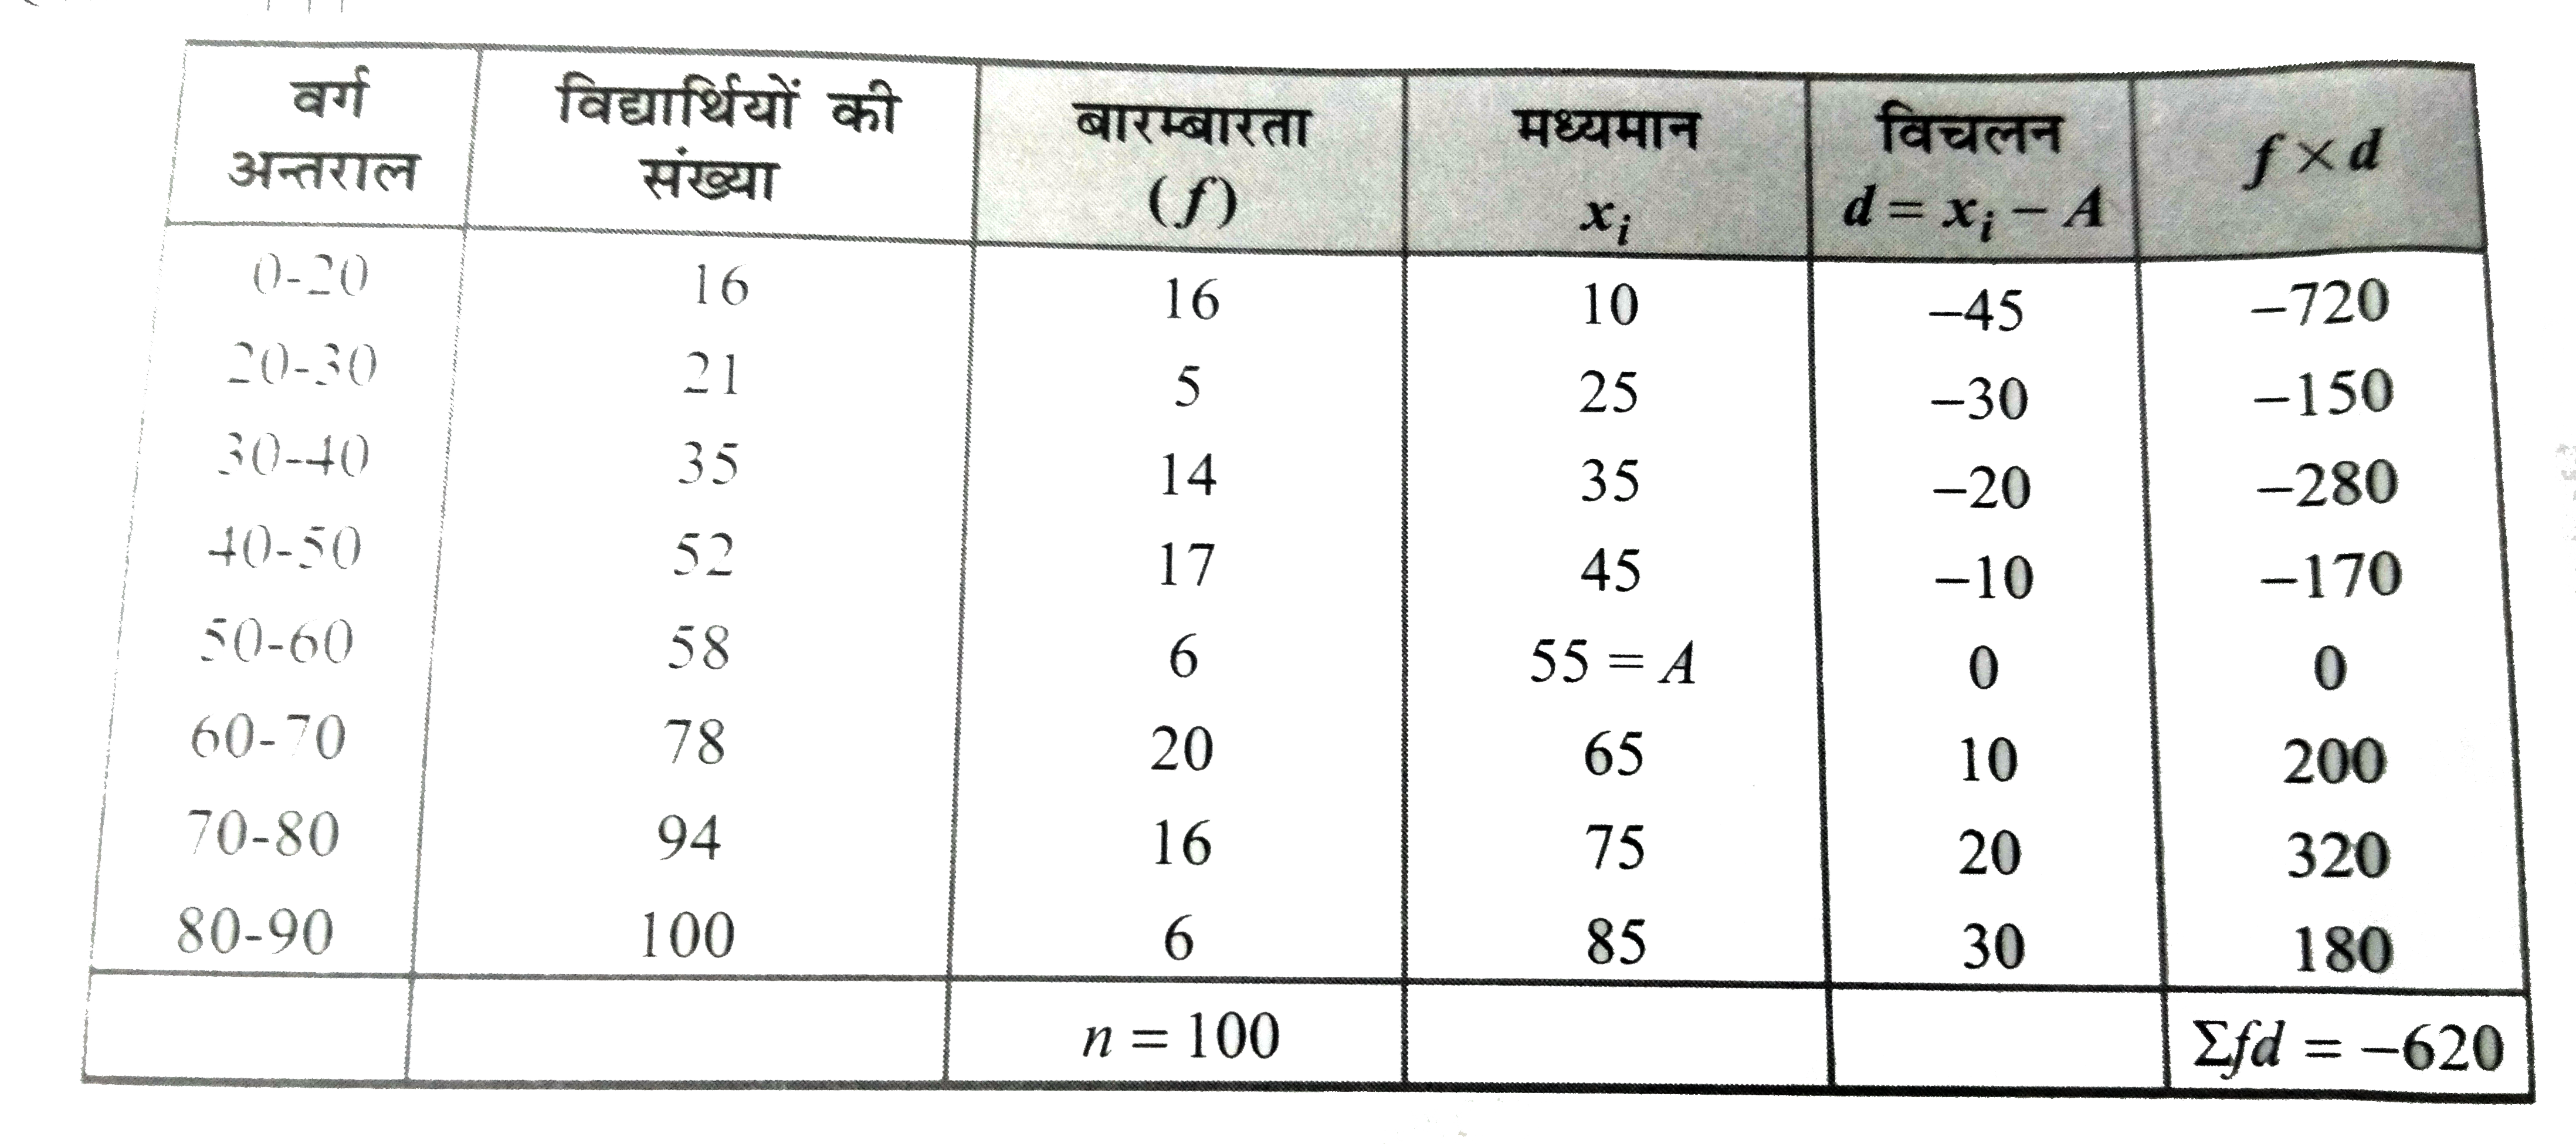 वर्ग अन्तराल विद्यार्थियों की संख्या बारम्बारता (f) मध्यमान xᵢ विचलन d = xᵢ – A f × d
0-20 16 16 10 –45 –720
20-30 21 5 25 –30 –150
30-40 35 14 35 –20 –280
40-50 52 17 45 –10 –170
50-60 58 6 55 = A 0 0
60-70 78 20 65 10 200
70-80 94 16 75 20 320
80-90 100 6 85 30 180
n = 100 Σfd = –620